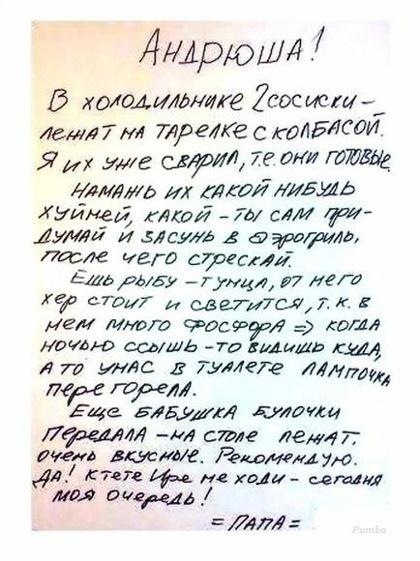 Андрюша!
В холодильнике 2 сосиски –
лежат на тарелке с колбасой.
Я их уже сварил, т.е. они готовые.
Намажь их какой нибудь
хуйней, какой – ты сам при-
думай и засунь в аэрогриль,
после чего стрескай.
Ешь рыбу – тунца, от него
хер стоит и светится, т.к. в
нем много фосфора => когда
ночью ссышь – то видишь куда,
а то унас в туалете лампочка
перегорела.
Еще бабушка булочки
передала – на столе лежат,
очень вкусные. Рекомендую.
Да! К тете Ире не ходи – сегодня
моя очередь!
= ПАПА =
Pumba